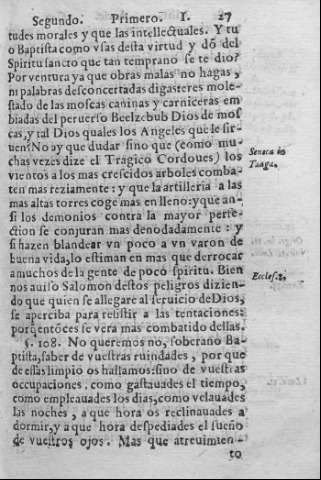 Segundo. Primero. I. 27
tudes morales y que las intellectuales. Y tu
o Baptista como vsas desta virtud y dõ del
Spiritu sancto que tan temprano se te dio?
Por ventura ya que obras malas no hagas,
ni palabras desconcertadas digas te res mole-
stado de las moscas caninas y carniceras em
biadas del peruerso Beelzebub Dios de mos
cas, y tal Dios quales los Angeles que le sir-
uen? No ay que dudar sino que (como mu-
chas vezes dize el Tragico Cordoues) los
vientos a los mas crescidos arboles comba-
ten mas reziamente: y que la artilleria a las
mas altas torres coge mas en lleno: y que an-
si los demonios contra la mayor perfe-
ction se conjuran mas denodadamente: y
si hazen blandear vn poco a vn varon de
buena vida, lo estiman en mas que derrocar
a muchos de la gente de poco spiritu. Bien
nos auiso Salomon destos peligros dizien-
do que quien se allegare al seruicio de Dios,
se aperciba para resistir a las tentaciones:
porq̃ entõces se vera mas combatido dellas.
§. 108. No queremos no, soberano Ba-
ptista, saber de vuestras ruindades, por que
de essas limpio os hallamos: sino de vuestras
occupaciones: como gastauades el tiempo,
como empleauades los dias, como velauades
las noches, a que hora os reclinauades a
dormir, y a que hora despediades el sueño
de vuestros ojos. Mas que atreuimien-
to
Seneca in
Ecclesi. 2.